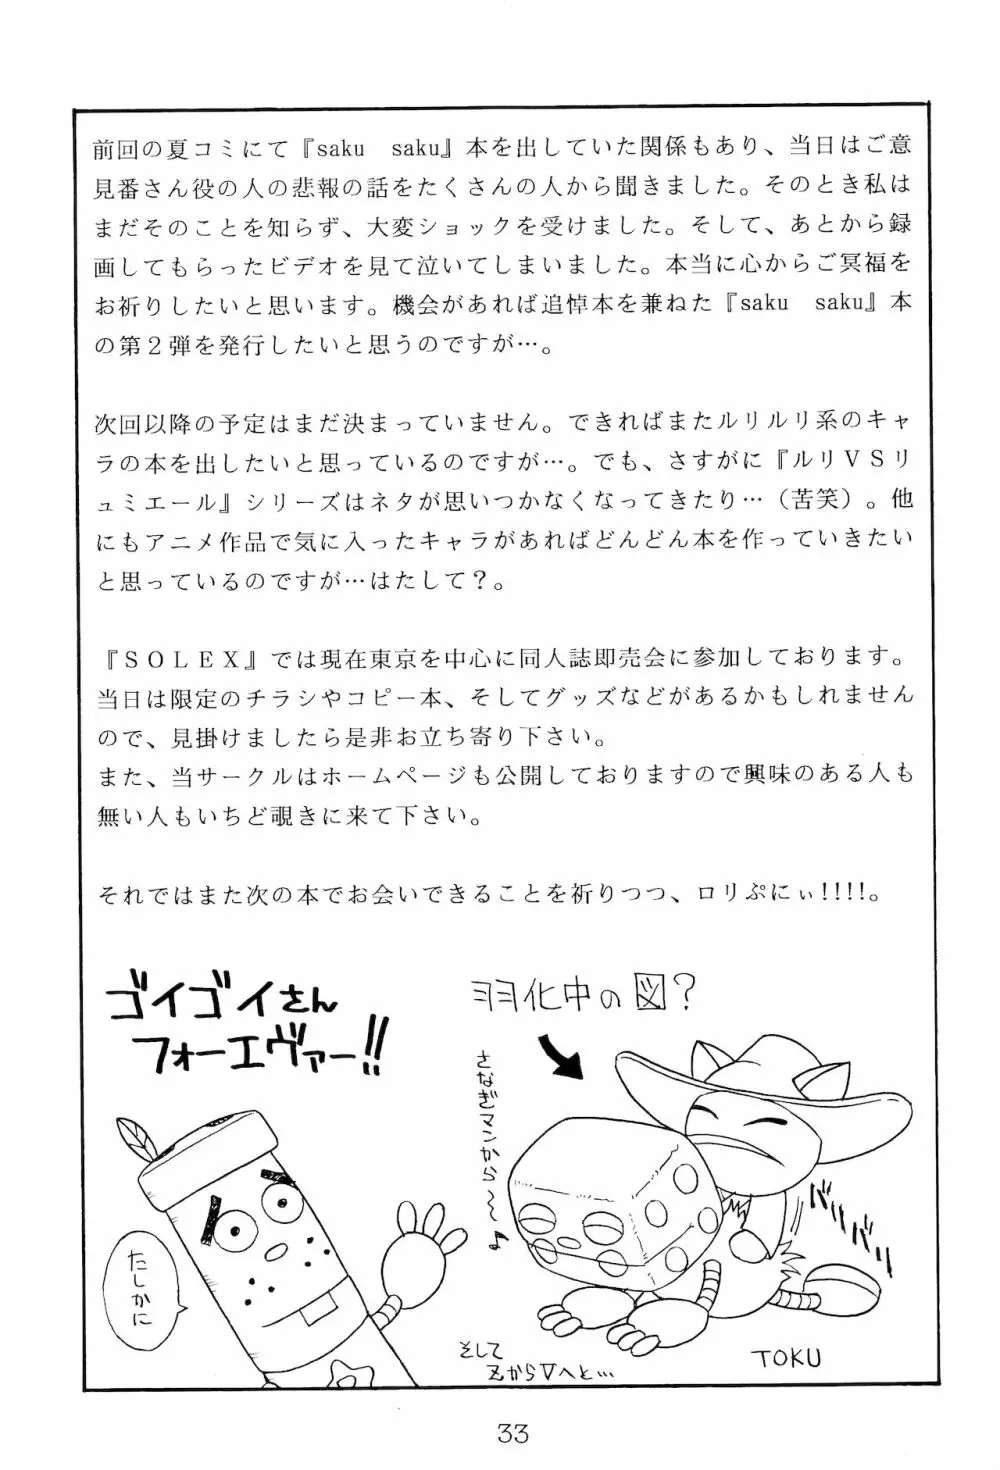 前回の夏コミにて『saku　saku』本を出していた関係もあり、当日はご意
見番さん役の人の悲報の話をたくさんの人から聞きました。そのとき私は
まだそのことを知らず、大変ショックを受けました。そして、あとから録
画してもらったビデオを見て泣いてしまいました。本当に心からご冥福を
お祈りしたいと思います。機会があれば追悼本を兼ねた『saku　saku』本
の第２弾を発行したいと思うのですが…。
次回以降の予定はまだ決まっていません。できればまたルリルリ系のキャ
ラの本を出したいと思っているのですが…。でも、さすがに『ルリＶＳリ
ュミエール』シリーズはネタが思いつかなくなってきたり…（苦笑）。他
にもアニメ作品で気に入ったキャラがあればどんどん本を作っていきたい
と思っているのですが…はたして？。
『ＳＯＬＥＸ』では現在東京を中心に同人誌即売会に参加しております。
当日は限定のチラシやコピー本、そしてグッズなどがあるかもしれません
ので、見掛けましたら是非お立ち寄り下さい。
また、当サークルはホームページも公開しておりますので興味のある人も
無い人もいちど覗きに来て下さい。
それではまた次の本でお会いできることを祈りつつ、ロリぷにぃ!!!!。
ゴイゴイさん
フォーエヴァー!!
羽化中の図?
さなぎマンから〜〜
たしかに
そして
ZからVへと…
TOKU
33